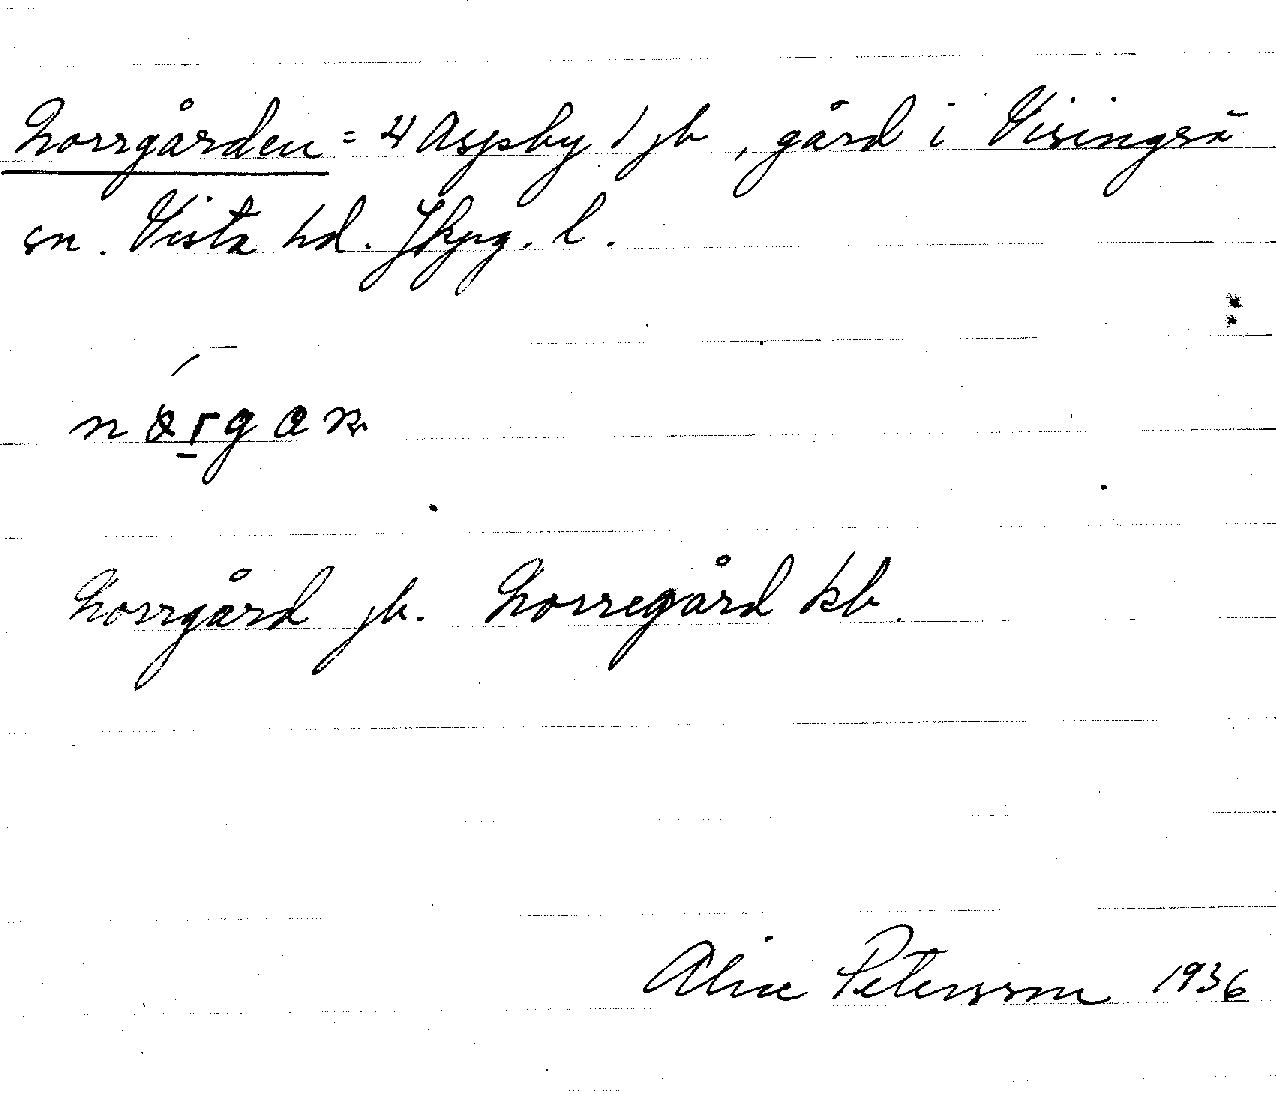 Norrgården = 4 Aspeby 1 jb, gård i Visingsö
sn. Vista hd. Jkpg. l.
Norrgård jb. Norregård kb.
Alice Petersson 1936